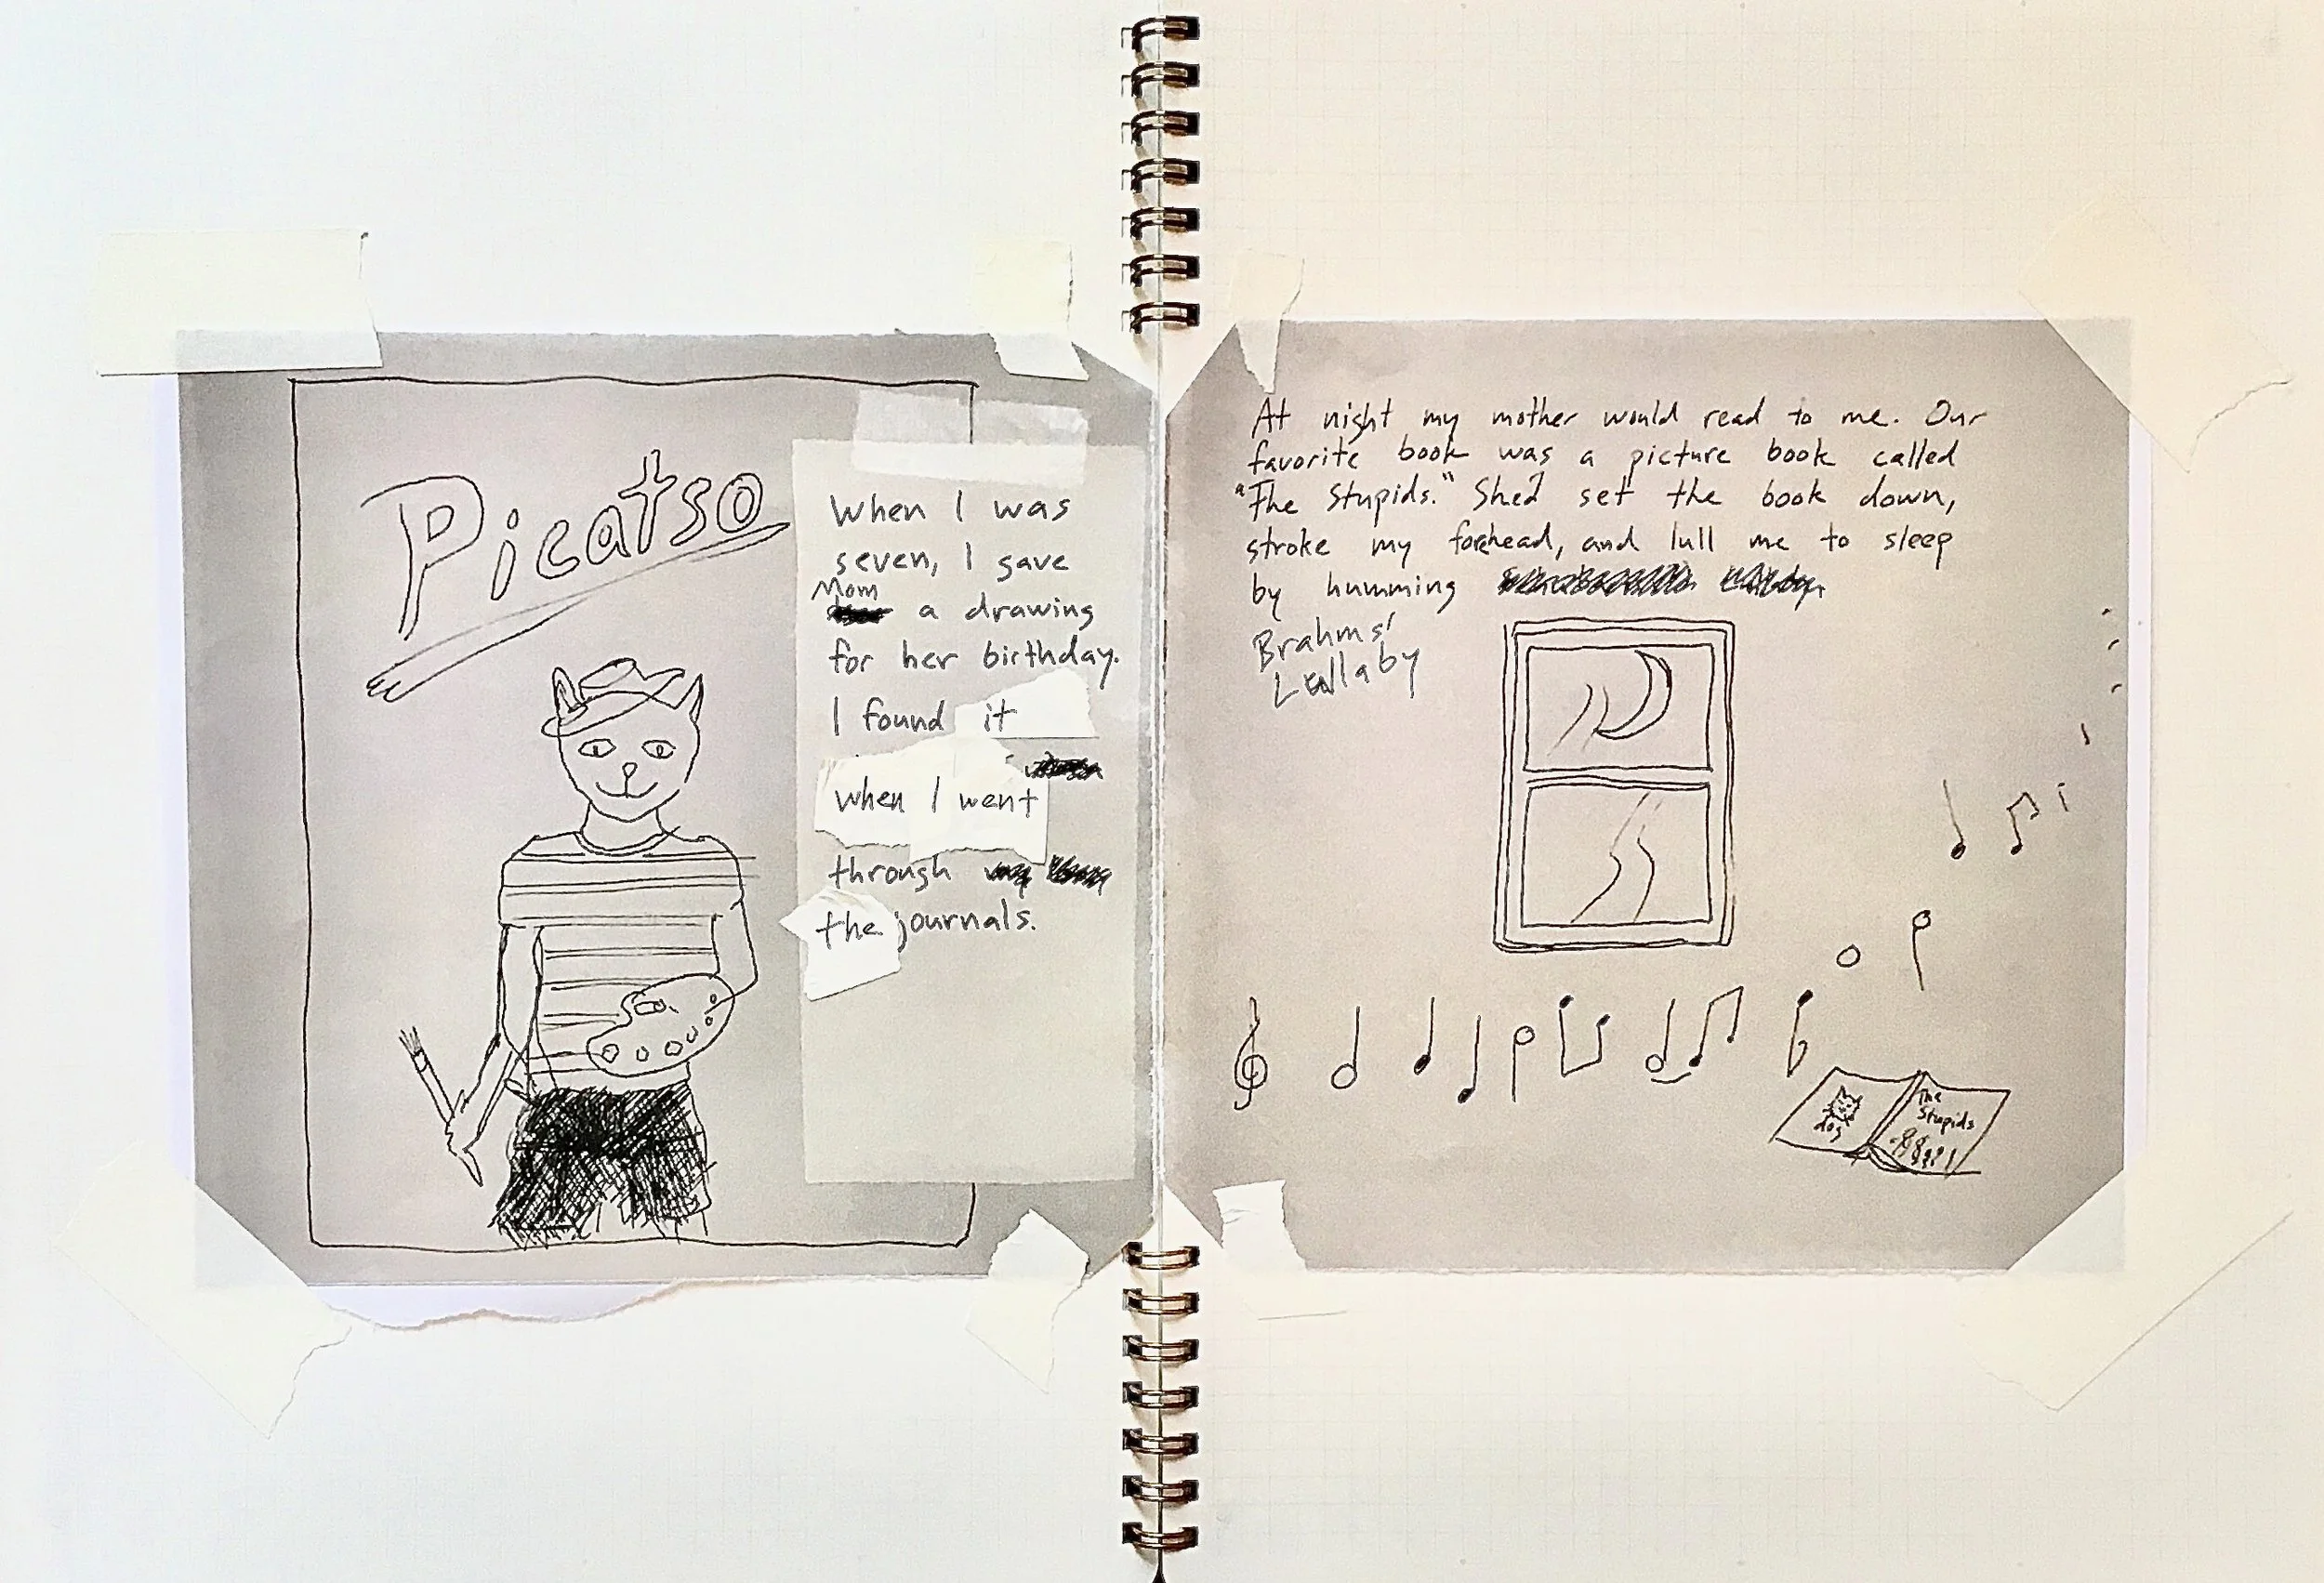 Picatso
When I was
seven, I gave
Mom
a drawing
for her birthday.
I found it
when I went
through
the journals.
At night my mother would read to me. Our
favorite book was a picture book called
"The Stupids." She'd set the book down,
stroke my forehead, and lull me to sleep
by humming
Brahms'
Lullaby
dog
The
Stupids